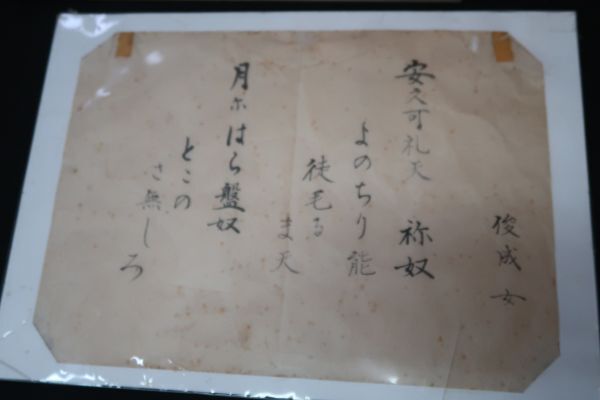 俊成女
安久可礼天 祢奴
よのちり能
徒毛る
ま天
月尓はら盤奴
とこの
さ無しろ